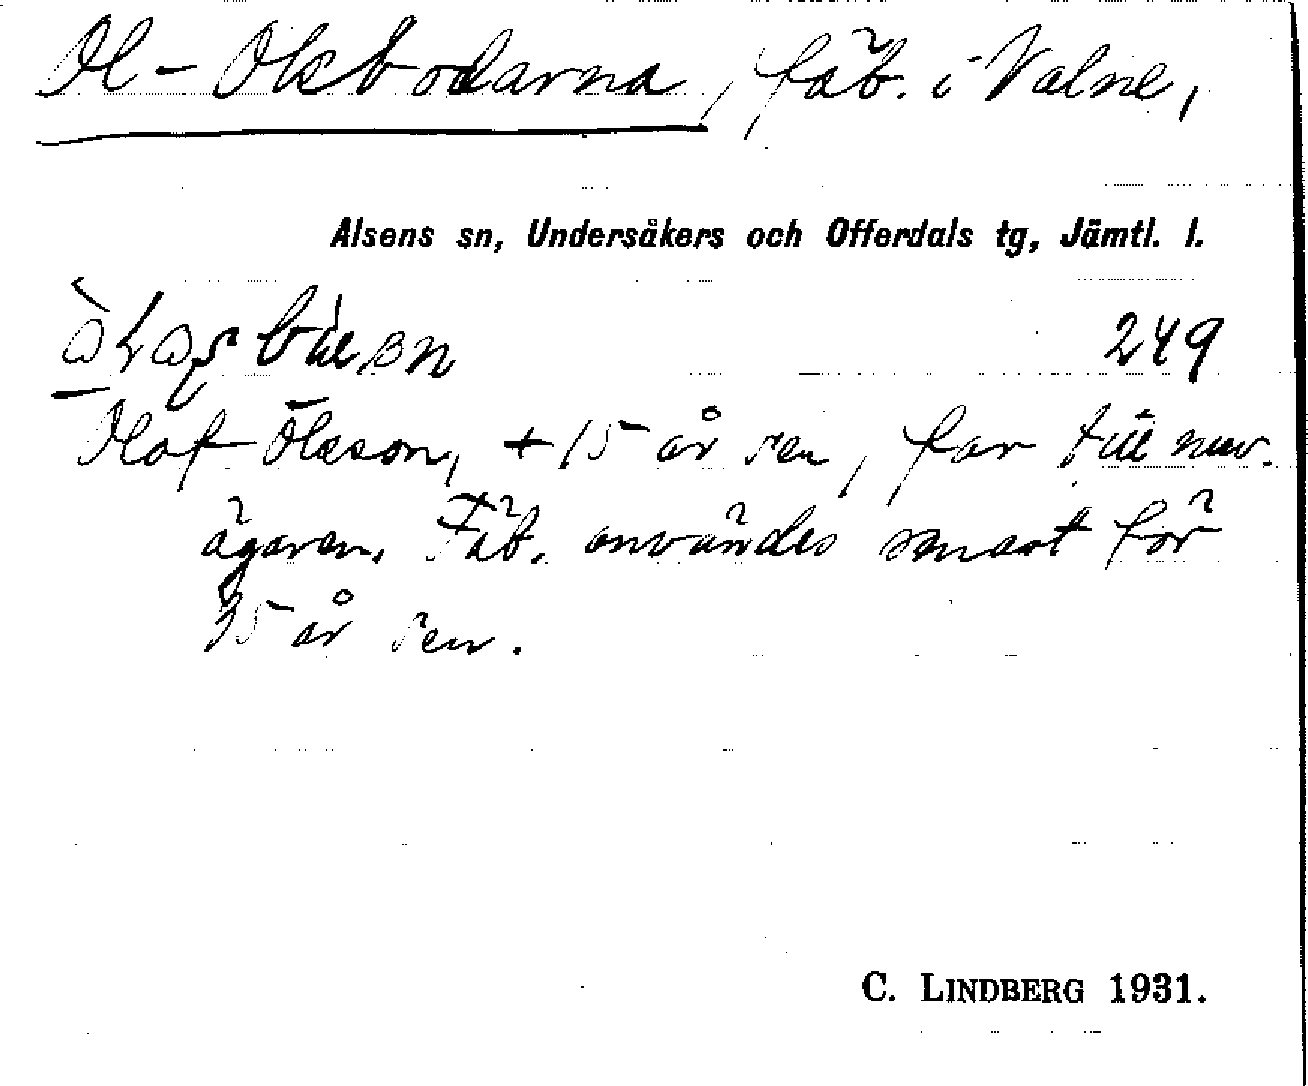 Ol-Olsbodarna, fäb. i Valne,
Alsens sn, Undersåkers och Offerdals tg, Jämtl. l.
249
Olof Olsson, + 15 år sen, far till nuv.
ägaren. Fäb. användes senast för
35 år sen.
C. LINDBERG 1931.